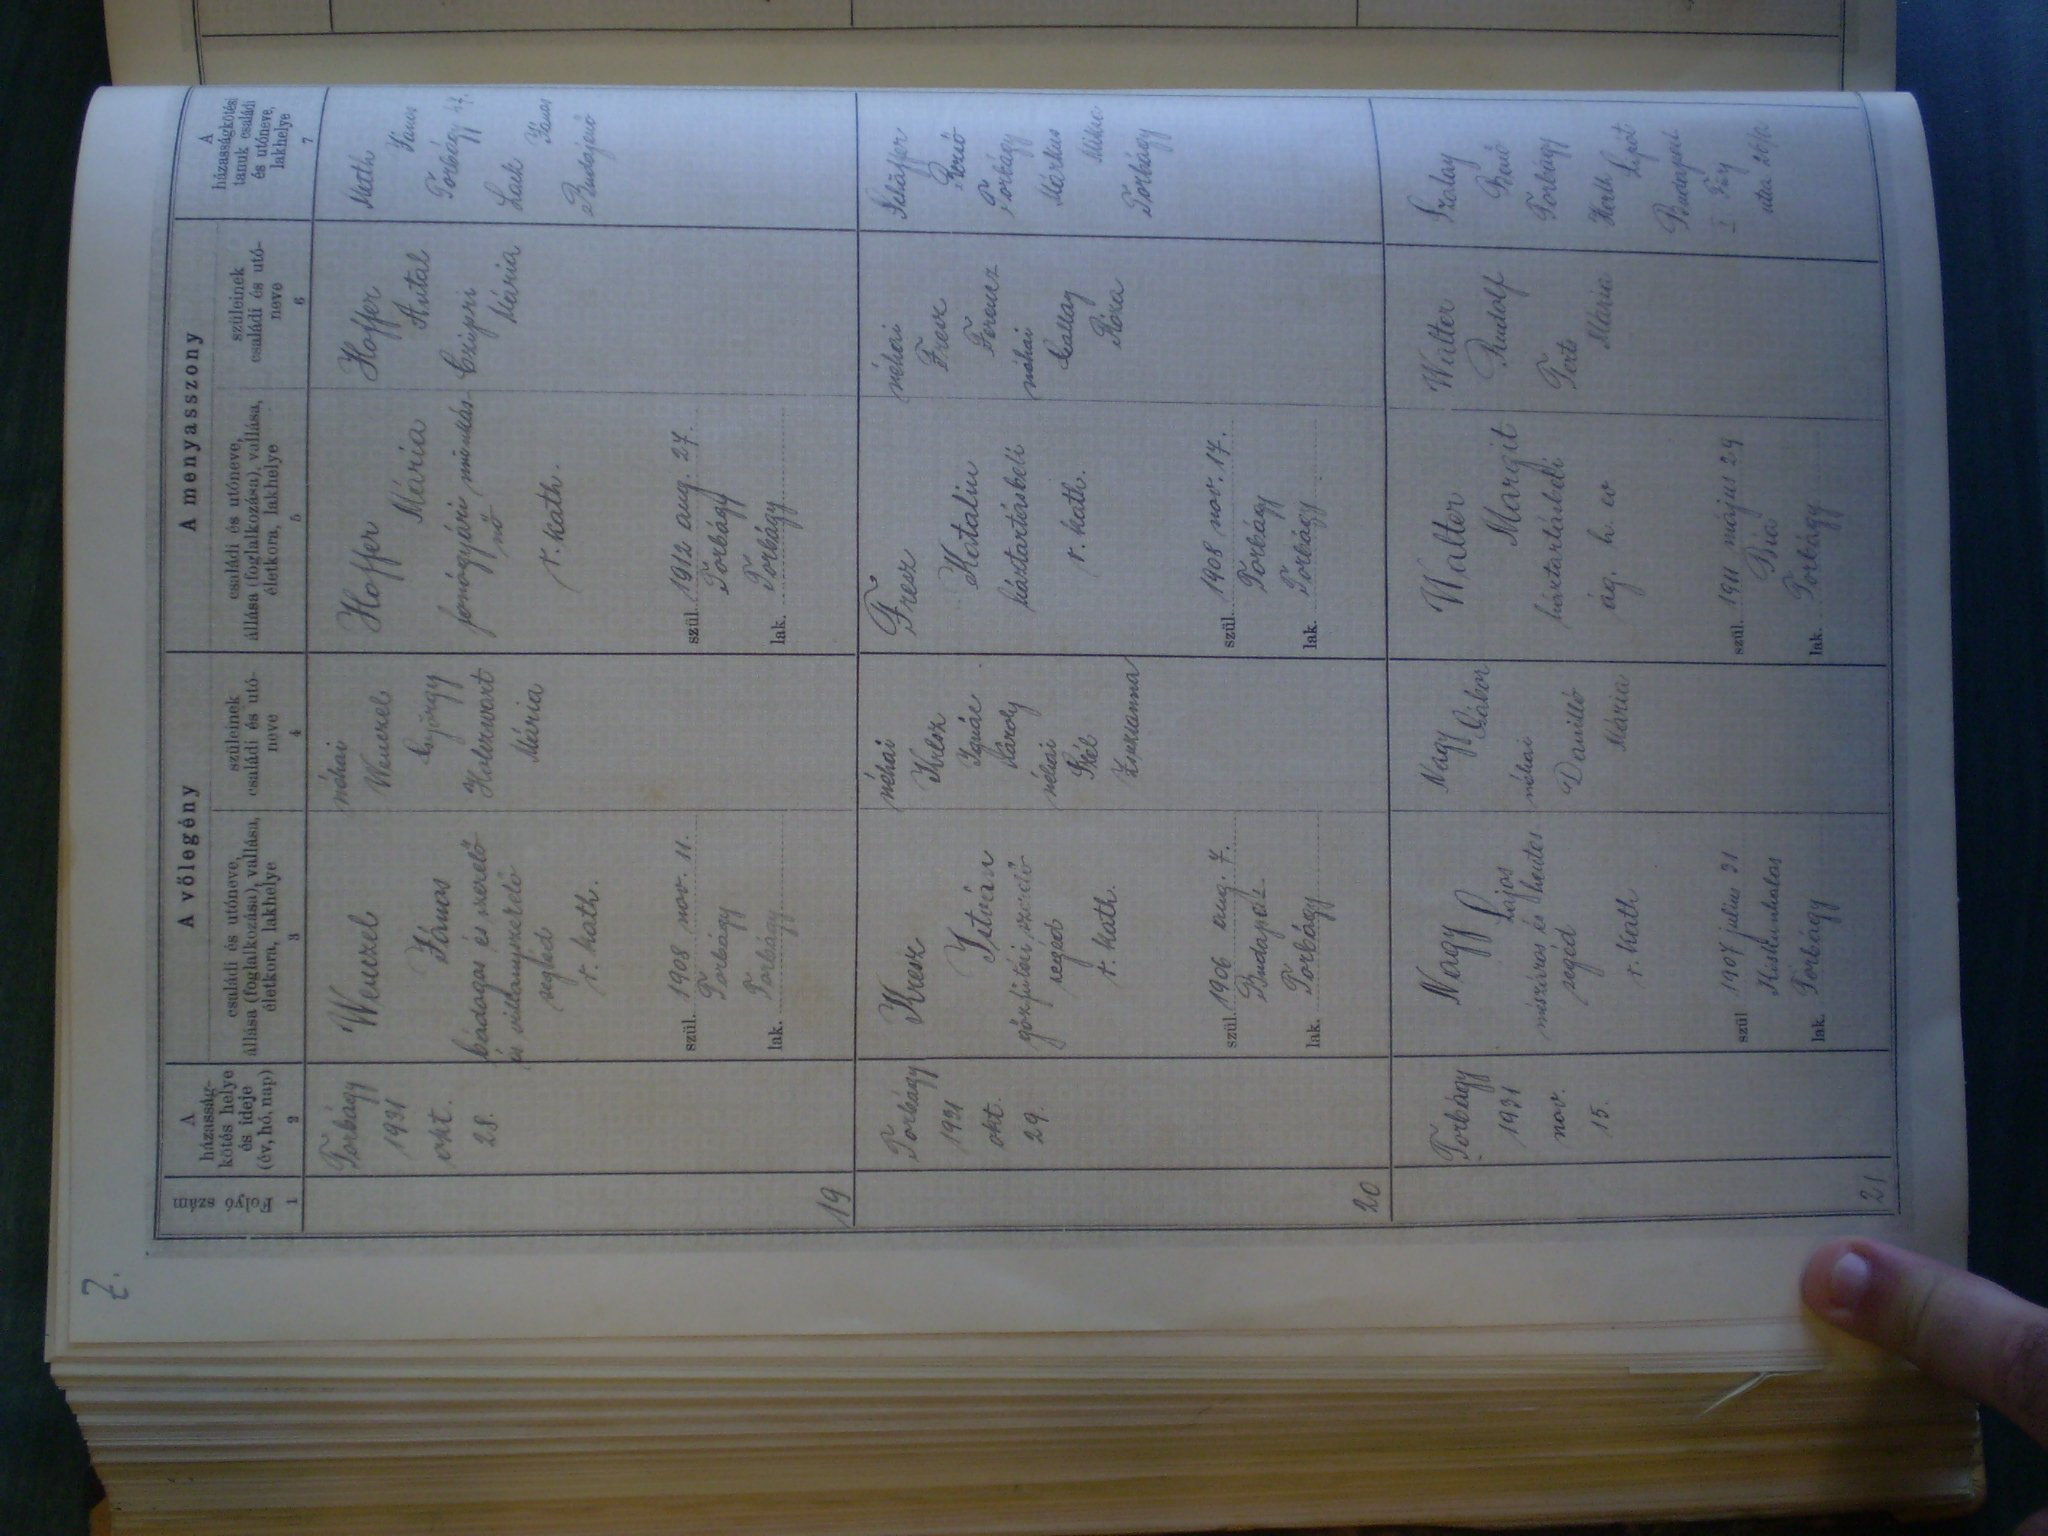 7.
A völegény
A menyasszony
Folyó szám
1
A
házasság-
kötés helye
és ideje
(év, hó, nap)
2
családi és utóneve,
állása (foglalkozása), vallása,
életkora, lakhelye
3
szüleinek
családi és utó-
neve
4
családi és utóneve,
állása (foglalkozása), vallása,
életkora, lakhelye
5
szüleinek
családi és utó-
neve
6
A
házasságkötési
tanuk családi
és utóneve,
lakhelye
7
19
Torbágy
1931
okt.
28.
Wenczel
János
bádogos és szerelő
és vízvezetékszerelő
segéd
r. kath.
szül. 1908 nov. 11.
Torbágy
lak. Torbágy
néhai
Wenczel
György
Mária
Hoffer
Mária
fonógyári munkás-
nő
r. kath.
szül. 1912 aug. 27.
Torbágy
lak. Torbágy
Hoffer
Antal
Czipri
Mária
Meth
János
Torbágy
János
Budajenő
20
Torbágy
1931
okt.
29.
Kresz
István
gőzfűtési szerelő
segéd
r. kath.
szül. 1906 aug. 7.
Budapest
lak. Torbágy
néhai
Kresz
Ignác
Károly
néhai
Zsuzsanna
Fresz
Katalin
háztartásbeli
r. kath.
szül. 1908 nov. 17.
Torbágy
lak. Torbágy
néhai
Fresz
Ferencz
néhai
Csallag
Róza
Schäffer
Rezső
Torbágy
Márkus
Torbágy
21
Torbágy
1931
nov.
15.
Nagy
Lajos
mészáros és hentes
segéd
r. kath
szül 1907 julius 31
Kiskunhalas
lak. Torbágy
Nagy
Gábor
néhai
Daniló
Mária
Walter
Margit
háztartásbeli
ág. h. ev
szül. 1911 május 29
Bia
lak. Torbágy
Walter
Rudolf
Mária
Szalay
Benő
Torbágy
Lipót
Budapest
I Fáy
utca